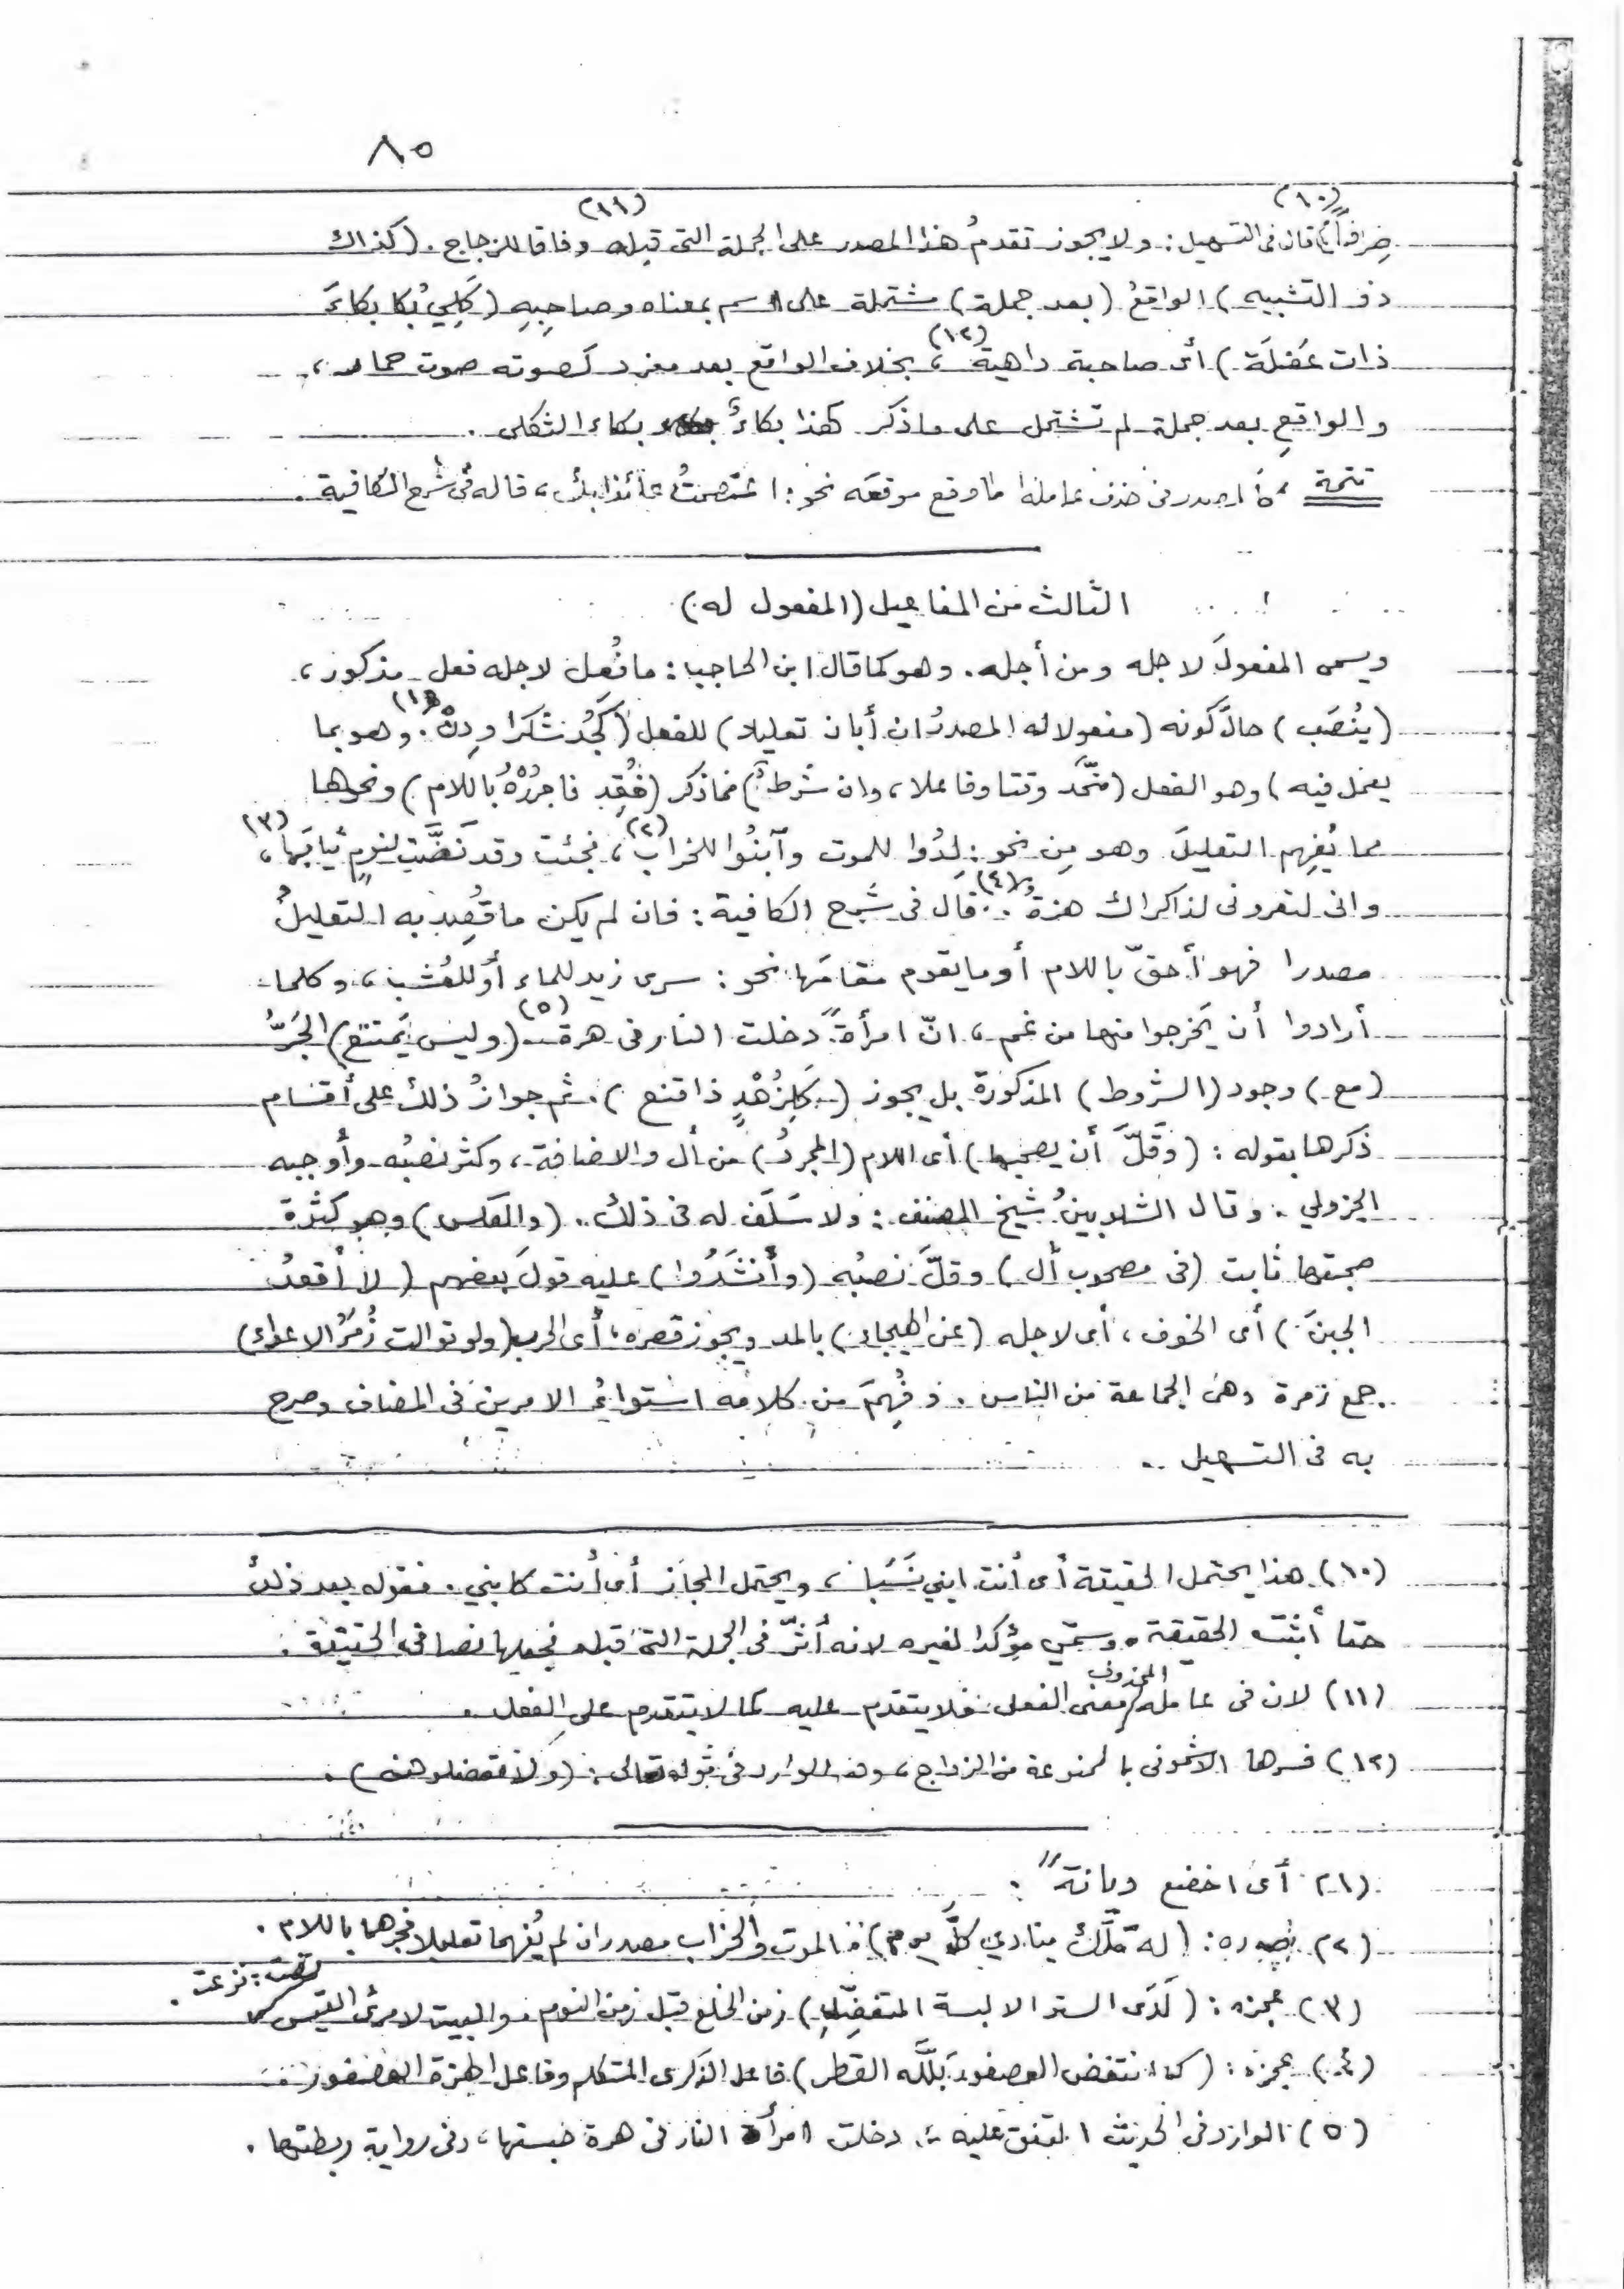 ٨٥
صِرفاً (١٠) قال فى التسهيل: ولا يجوز تقدمُ هذا المصدر على الجملة التى قبله وفاقا للزجاج (١١). (كذاك
ذو التشبيه) الواقعُ (بعد جملة) مشتملة على اسم بمعناه وصاحِبِهِ (كَلِيْ بُكا بكاءَ
ذات عَضلَة) أى صاحبة داهية (١٢)، بخلاف الواقع بعد مفرد كصوته صوت حمار،
والواقعِ بعد جملة لم تشتمل على ما ذكر كهذا بكاءٌ بكاء الثكلى.
تتمة ، كالمصدر فى حذف عامله ما وقع موقعَه نحو: اعتصمتُ عائذا بك، قاله فى شرح الكافية.
الثالث من المفاعيل (المفعول له)
ويسمى المفعولَ لاجله ومن أجله. وهو كما قال ابن الحاجب: ما فُعل لاجله فعل مذكور،
(يُنصَب) حالَ كونه (مفعولا له المصدرُ ان أبان تعليلا) للفعل (كَجُد شكرا ودِنْ (١). وهو بما
يعمل فيه) وهو الفعل (متّحد وقتا وفاعلا، وان شرطٌ) مما ذكر (فُقِد فاجرُرْهُ باللام) ونحوها
مما يُفهِم التعليلَ وهو مِن نحو: لِدُوا للموت وآبنُوا للخراب (٢)، فجئت وقد نَضَّت لنومٍ ثيابَها (٣)،
وانى لتعرونى لذاكراك هزة (٤). قال فى شرح الكافية: فان لم يكن ما قُصِد به التعليلُ
مصدرا فهو أحقّ باللام أو ما يقوم مقامَها نحو: سرى زيد للماء أو للعُشب، وكلما
أرادوا أن يَخرجوا منها من غم، انّ امرأةً دخلت النار فى هرة (٥) (وليس يَمتنع) الجَرُّ
(مع) وجود (الشروط) المذكورة بل يجوز (كَلِزُهْدٍ ذا قنع). ثم جوازُ ذلك على أقسام
ذكرها بقوله: (وقَلَّ أن يصحبها) أى اللام (المجردُ) من أل والاضافة، وكثر نصبُه وأوجبه
الجزولي. وقال الشلوبينُ شيخ المصنف: ولا سَلَف له فى ذلك. (والعكس) وهو كثرة
صحبتها ثابت (فى مصحوب أل) وقلَّ نصبُه (وأنشَدُوا) عليه قولَ بعضهم (لا أقعدُ
الجبنَ) أى الخوف، أى لاجله (عن الهيجاء) بالمد ويجوز قصره، أى الحرب (ولو توالت زُمَرُ الاعداء)
جمع زمرة وهى الجماعة من الناس. وفُهِمَ من كلامه استواءُ الامرين فى المضاف وصرح
به فى التسهيل.
(١٠) هذا يحتمل الحقيقة أى أنت ابني نَسَبا، ويحتمل المجاز أى أنت كابني. فقوله بعد ذلك
حقا أثبت الحقيقة. وسمّي مؤكدا لغيره لانه أثرّ فى الجملة التى قبله فجعلها نصا فى الحقيقة.
(١١) لان فى عامله المحذوف معنى الفعل فلا يتقدم عليه كما لا يتقدم على الفعل.
(١٢) فسرها الاشمونى بالممنوعة من الزواج، وهو الوارد فى قوله تعالى: (ولا تعضلوهن).
(١) أى اخضع ديانةً.
(٢) صدره: (له مَلَكٌ ينادي كلَّ يوم) فالموت والخراب مصدران لم يُفهما تعليلا فجرهما باللام.
(٣) عجزه: (لَدَى الستر الا لبسة المتفضِّلِ) زمن الخلع قبل زمن النوم. والبيت لامرئ القيس. نضت: نزعت.
(٤) عجزه: (كما انتفض العصفورُ بلَّله القطر) فاعل الذكرى المتكلم وفاعل الهزة العصفور.
(٥) الوارد فى الحديث المتفق عليه: دخلت امرأة النار فى هرة حبستها، وفى رواية ربطتها.